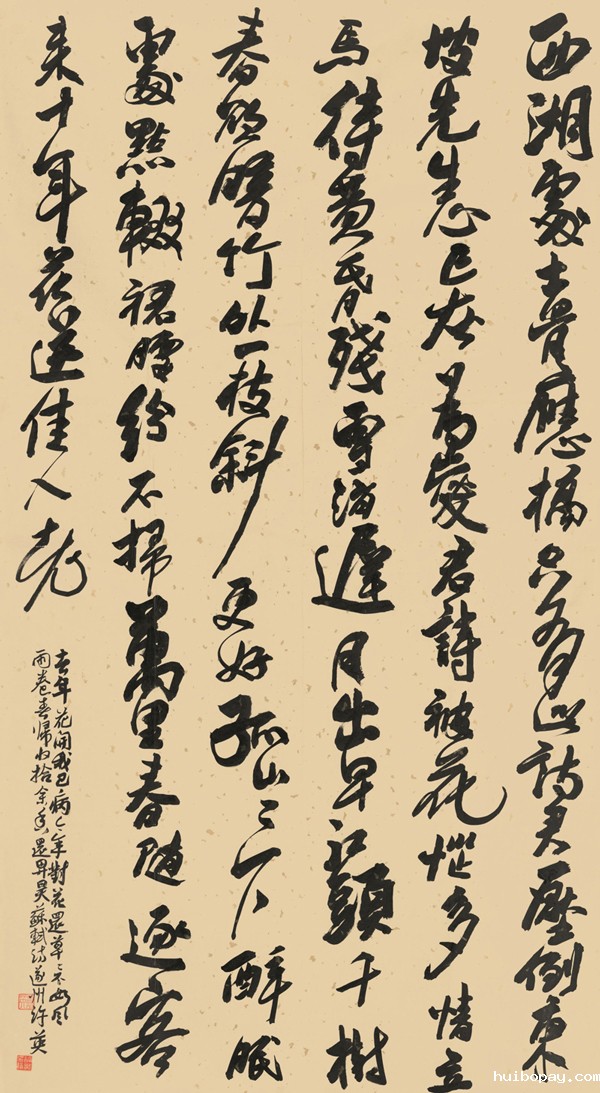 西湖處士骨應槁只有此詩君壓倒東
坡先生心已灰為愛君詩被花惱多情立
馬待黃昏殘雪消遲月出早江頭千樹
春欲暗竹外一枝斜更好孤山〻下醉眠
處點輟裙腰紛不掃萬里春隨逐客
來十年花送佳人老
去年花開我已病今年對花還草〻不如風
雨卷春歸收拾余香還畀昊蘇軾詩遂州許英
huibopay.com